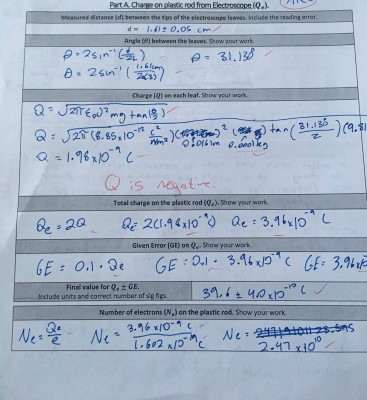 Part A. Charge on plastic rod from Electroscope (Qe).
Measured distance (d) between the tips of the electroscope leaves. Include the reading error.
d = 1.61 ± 0.05 cm
Angle (θ) between the leaves. Show your work.
θ = 2sin⁻¹(d/2L) θ = 31.13°
θ = 2sin⁻¹(1.61cm/2(3))
Charge (Q) on each leaf. Show your work.
Q = √2π ε₀ d² mg tan(θ/2)
Q = √2π(8.85x10⁻¹² C²/Nm²)(0.0161m)²(0.0001kg) tan(31.13°/2)(9.81
Q = 1.98x10⁻⁹ C
Q is negative.
Total charge on the plastic rod (Qe). Show your work.
Qe = 2Q Qe = 2(1.98x10⁻⁹C) Qe = 3.96x10⁻⁹ C
Given Error (GE) on Qe. Show your work.
GE = 0.1 · Qe GE = 0.1 · 3.96x10⁻⁹ C GE = 3.96x
Final value for Qe ± GE.
Include units and correct number of sig figs.
39.6 ± 4.0 x10⁻¹⁰ C
Number of electrons (Ne) on the plastic rod. Show your work.
Ne = Qe/e Ne = 3.96 x10⁻⁹ C/1.602 x10⁻¹⁹ C Ne = 2.47 x10¹⁰